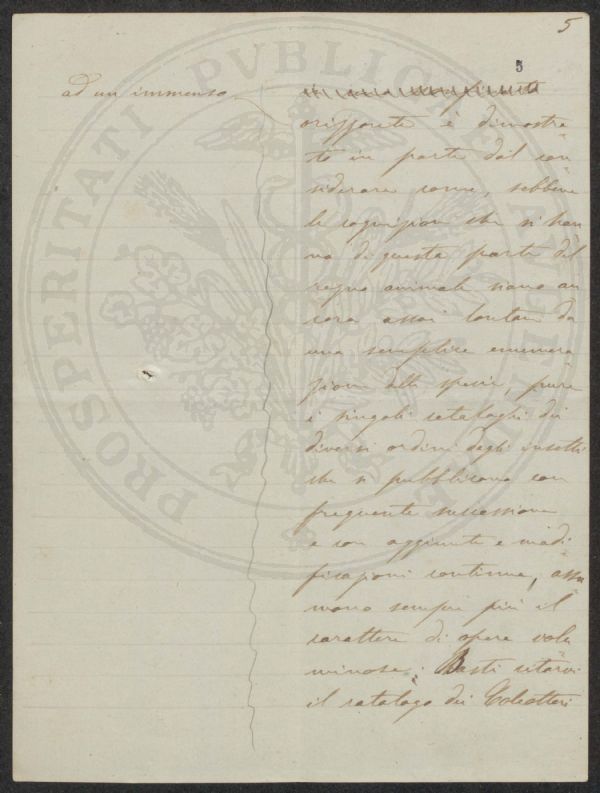 5
5
ad un immenso
orizzonte è dimostra
to in parte dal con
siderare come, sebbene
le cognizioni che si han
no di questa parte del
regno animale siano an
cora assai lontane da
una semplice enumera
zione delle specie, pure
i singoli cataloghi dei
diversi ordini degli insetti
che si pubblicano con
frequente successione
e con aggiunte e modi
ficazioni continue, assu
mono sempre più il
carattere di opere volu
minose. Basti citarvi
il catalogo dei Coleotteri
PROSPERITATI PVBLICAE AVGENDAE